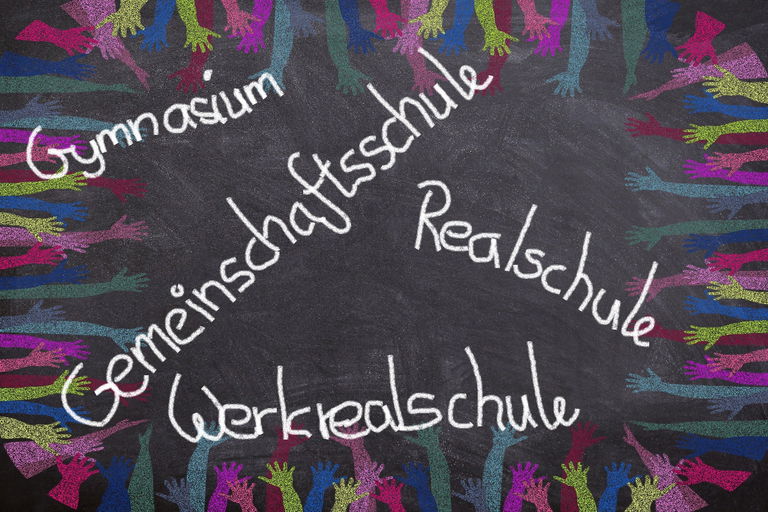 Gymnasium
Gemeinschaftsschule
Realschule
Werkrealschule